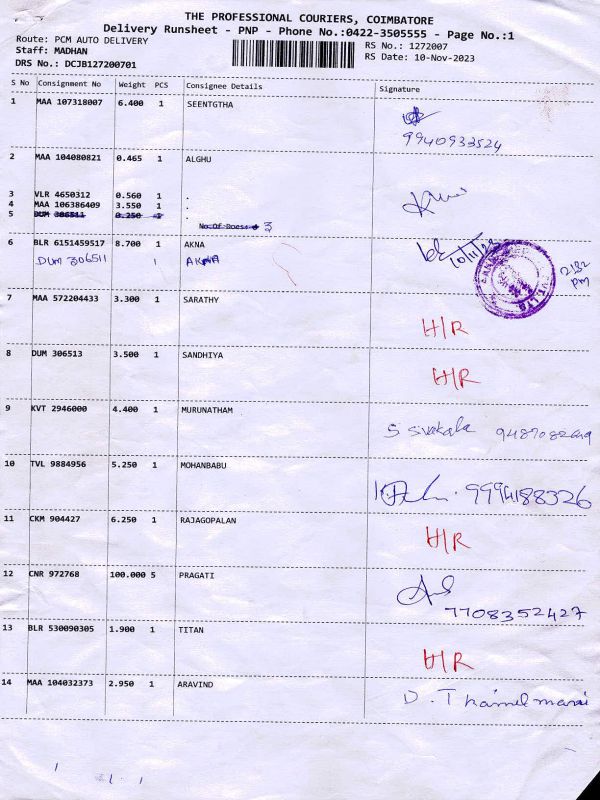 THE PROFESSIONAL COURIERS, COIMBATORE
Delivery Runsheet - PNP - Phone No.:0422-3505555 - Page No.:1
Route: PCM AUTO DELIVERY
RS No.: 1272007
Staff: MADHAN
RS Date: 10-Nov-2023
DRS No.: DCJB127200701
S No Consignment No Weight PCS Consignee Details Signature
1 MAA 107318007 6.400 1 SEENTGTHA
9940933524
2 MAA 104080821 0.465 1 ALGHU
3 VLR 4650312 0.560 1 .
4 MAA 106386409 3.550 1 .
5 DUM 306511 0.250 1 .
No.Of.Docs: 3
6 BLR 6151459517 8.700 1 AKNA
10/11/23
DUM 306511 1 AKNA
2:32 pm
7 MAA 572204433 3.300 1 SARATHY
H/R
8 DUM 306513 3.500 1 SANDHIYA
H/R
9 KVT 2946000 4.400 1 MURUNATHAM
S Sivakala
10 TVL 9884956 5.250 1 MOHANBABU
9994188326
11 CKM 904427 6.250 1 RAJAGOPALAN
H/R
12 CNR 972768 100.000 5 PRAGATI
7708352427
13 BLR 530090305 1.900 1 TITAN
H/R
14 MAA 104032373 2.950 1 ARAVIND
D. Thamilmani